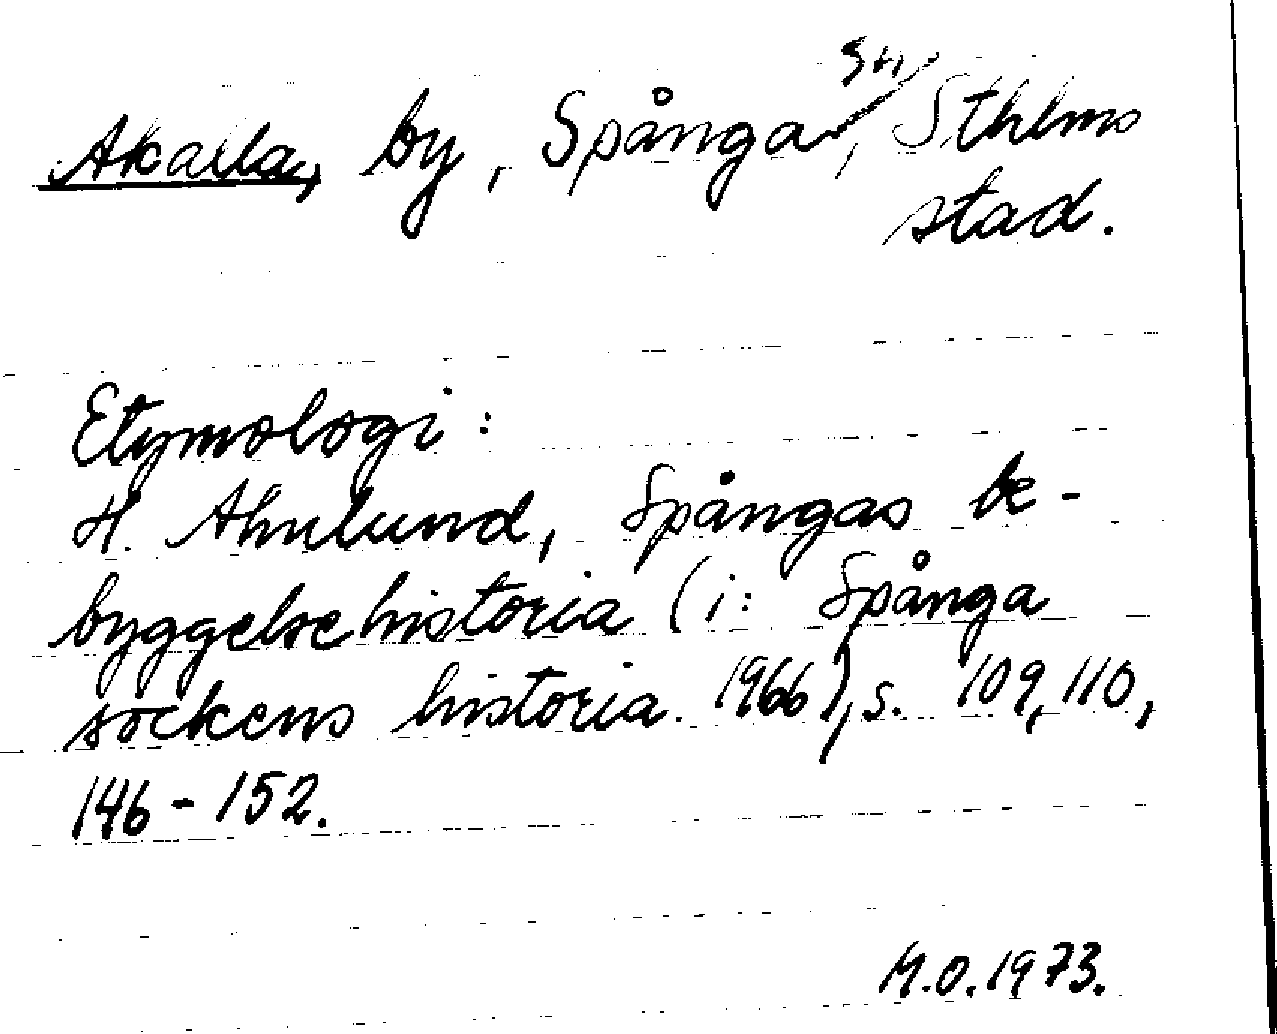 Akalla, by, Spånga sn, Sthlms
stad.
Etymologi:
H. Ahnlund, Spångas be-
byggelsehistoria (i: Spånga
sockens historia. 1966), s. 109, 110,
146-152.
M.O. 1973.